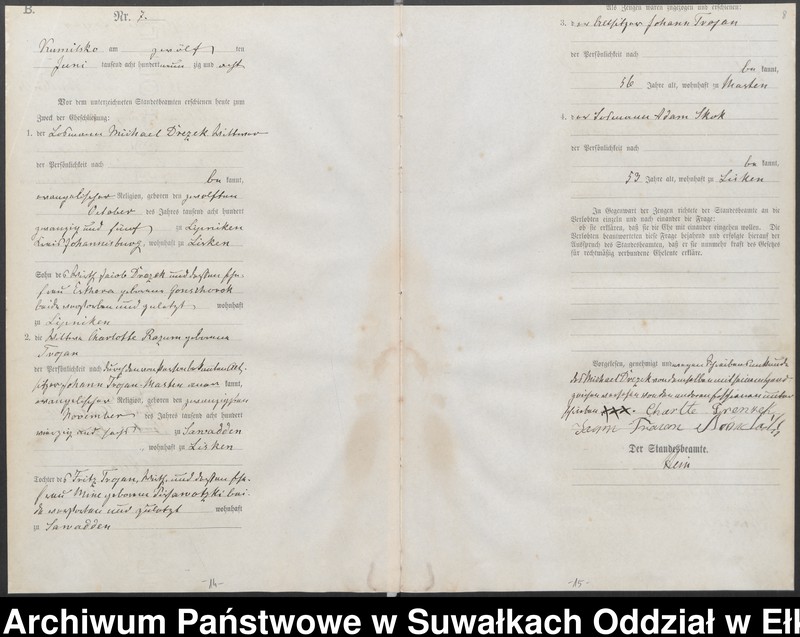 B.
Nr. 7.
Kumilsko am zwölf ten
Juni tausend acht hundert neun zig und acht
Vor dem unterzeichneten Standesbeamten erschienen heute zum
Zweck der Eheschließung:
1. der Losmann Michael Drezek Wittwer
der Persönlichkeit nach
be kannt,
evangelischer Religion, geboren den zwölften
October des Jahres tausend acht hundert
zwanzig und fünf zu Lipniken
Kreis Johannisburg, wohnhaft zu Lisken
Sohn des Wirth Jacob Drezek und dessen Ehe-
frau Esthera geborene
beide verstorben und zuletzt wohnhaft
zu Lipniken
2. die Wittwe Charlotte Razum geborene
Trojan
der Persönlichkeit nach durch den von Person bekannten Alt-
sitzer Johann Trojan-Masten aner kannt,
evangelischer Religion, geboren den zwanzigsten
November des Jahres tausend acht hundert
vierzig und sechs zu Sawadden
, wohnhaft zu Lisken
Tochter des Fritz Trojan, Wirth und dessen Ehe-
frau Mine geborene bei-
de verstorben und zuletzt wohnhaft
zu Sawadden
-14-
Als Zeugen waren zugezogen und erschienen:
8
3. der Altsitzer Johann Trojan
der Persönlichkeit nach
be kannt,
56 Jahre alt, wohnhaft zu Masten
4. der Losmann Adam Skok
der Persönlichkeit nach
be kannt,
53 Jahre alt, wohnhaft zu Lisken
In Gegenwart der Zeugen richtete der Standesbeamte an die
Verlobten einzeln und nach einander die Frage:
ob sie erklären, daß sie die Ehe mit einander eingehen wollen. Die
Verlobten beantworteten diese Frage bejahend und erfolgte hierauf der
Ausspruch des Standesbeamten, daß er sie nunmehr kraft des Gesetzes
für rechtmäßig verbundene Eheleute erkläre.
Vorgelesen, genehmigt und wegen Schreibensunkunde
des Michael Drezek von demselben mit seinem Hand-
zeichen versehen von den anderen Personen unter-
schrieben xxx.
Der Standesbeamte.
Hein
-15-
Archiwum Państwowe w Suwałkach Oddział w Ełk